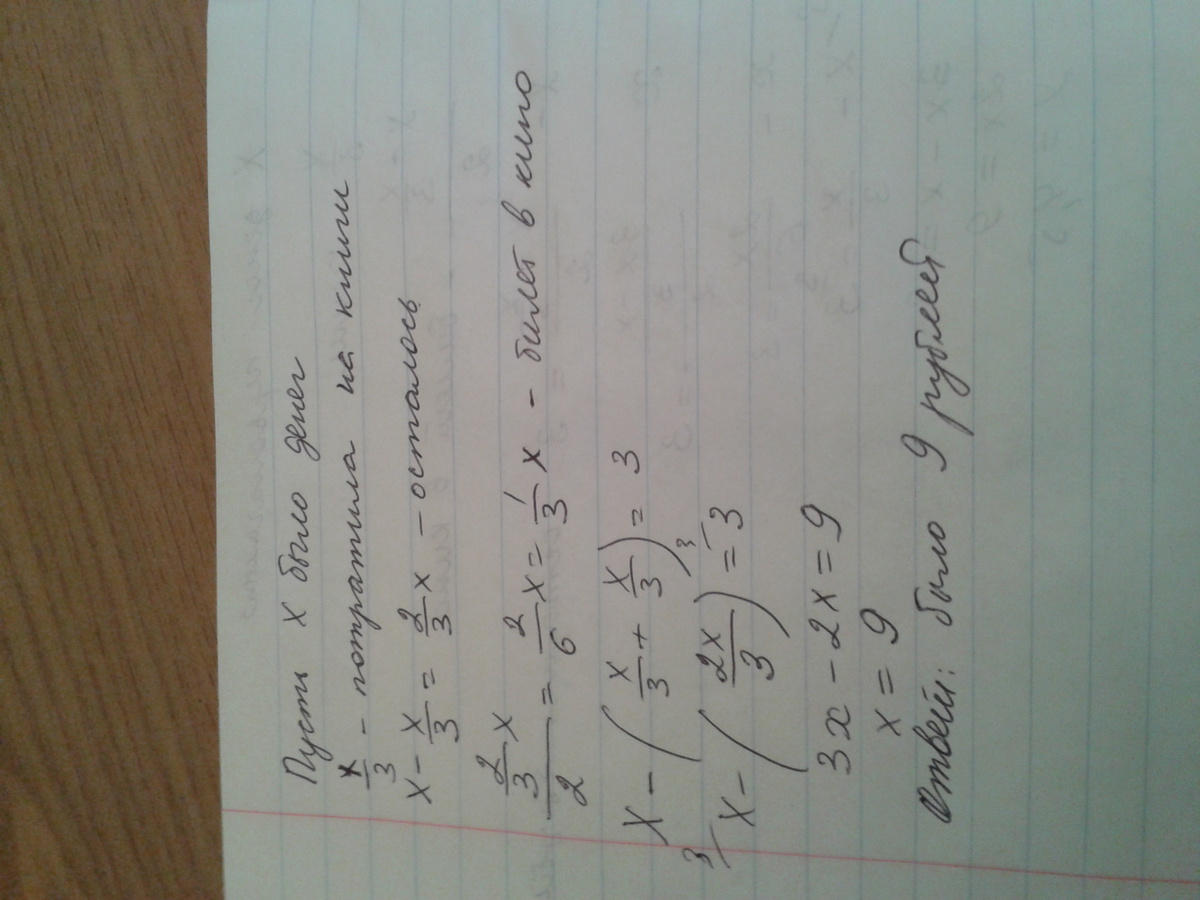 Пусть x было денег
x/3 - потратила на книги
x - x/3 = 2/3 x - осталось
(2/3 x)/2 = 2/6 x = 1/3 x - билет в кино
x - (x/3 + x/3) = 3
3/ x - (2x/3) = 3 /3
3x - 2x = 9
x = 9
Ответ: было 9 рублей